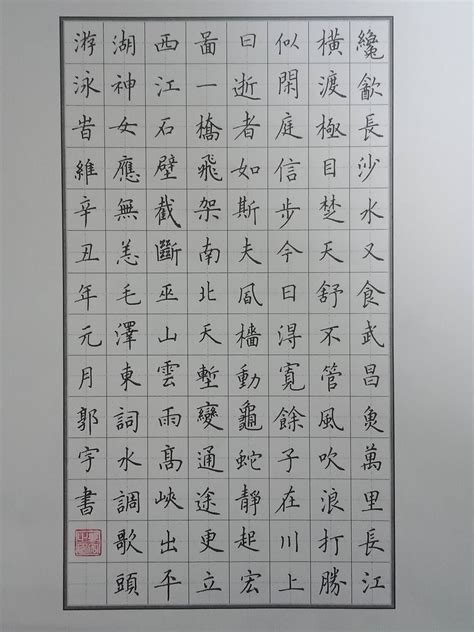 纔㱃長沙水又食武昌魚萬里長江
橫渡極目楚天舒不管風吹浪打勝
似閑庭信步今日得寬餘子在川上
曰逝者如斯夫凬檣動龜蛇靜起宏
啚一橋飛架南北天塹變通途更立
西江石壁截斷巫山雲雨高峽出平
湖神女應無恙毛澤東詞水調歌頭
游泳旹維辛丑年元月郭宇書